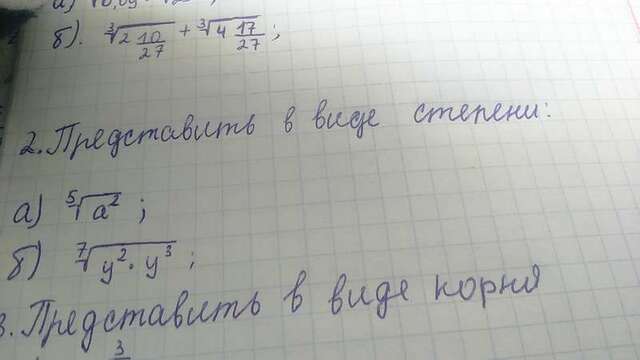 б). ∛(2 10/27) + ∛(4 17/27);
2. Представить в виде степени:
а) ⁵√a²;
б) ⁷√(y² · y³);
3. Представить в виде корня
3